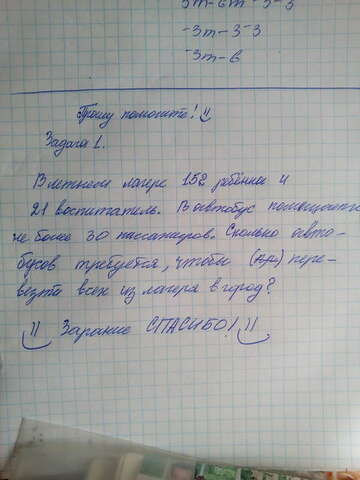 3m-6m-3-3
-3m-3-3
-3m-6
Прошу помогите!
Задача 1.
В летнем лагере 152 ребёнка и
21 воспитатель. В автобус помещается
не более 30 пассажиров. Сколько авто-
бусов требуется, чтобы пере-
везти всех из лагеря в город?
Зарание СПАСИБО!